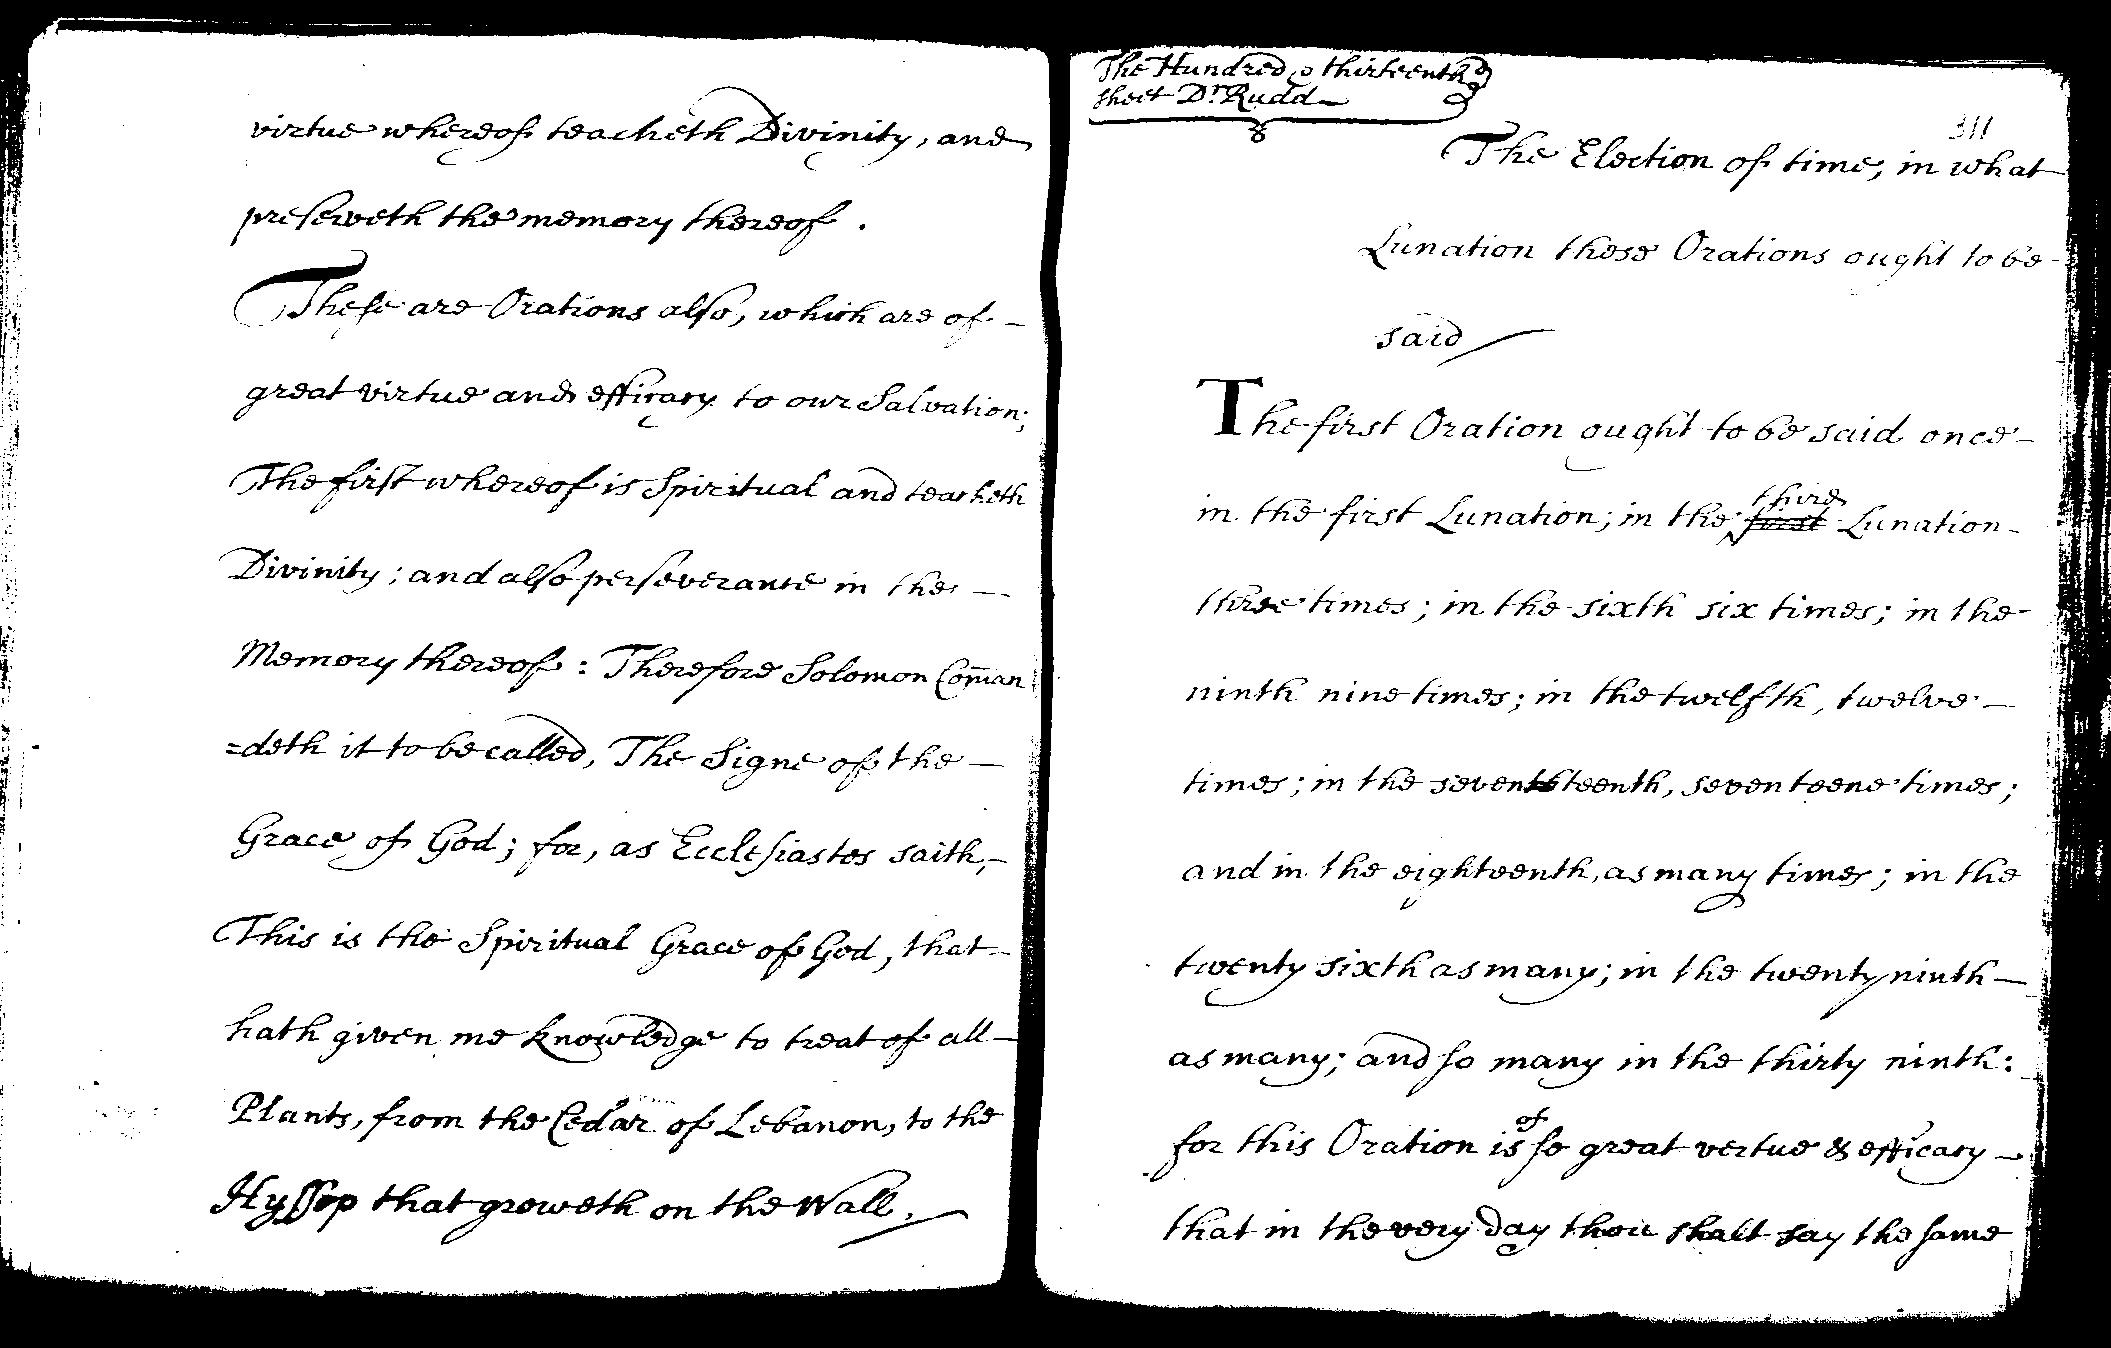 virtue whereof teacheth Divinity, and
preserveth the memory thereof.
These are Orations also, which are of -
great virtue and efficacy to our Salvation;
The first whereof is Spiritual and teacheth
Divinity; and also perseverance in the -
Memory thereof: Therefore Solomon Com̄an
=deth it to be called, The Signe of the -
Grace of God; for, as Ecclesiastes saith, -
This is the Spiritual Grace of God, that -
hath given me knowledge to treat of all -
Plants, from the Cedar of Lebanon, to the
Hyssop that groweth on the Wall.
The Hundred & thirteenth
sheet Dr. Rudd
311
The Election of time, in what
Lunation these Orations ought to be -
said
The first Oration ought to be said once -
in the first Lunation; in the first third Lunation -
three times; in the sixth six times; in the
ninth nine times; in the twelfth, twelve -
times; in the seventhteenth, seventeene times;
and in the eighteenth, as many times; in the
twenty sixth as many; in the twenty ninth -
as many; and so many in the thirty ninth:
for this Oration is of so great vertue & efficacy -
that in the very day thou shalt say the same